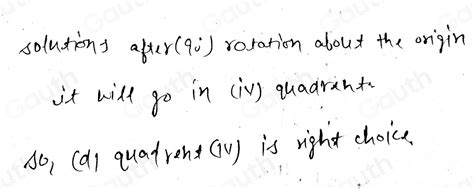 solutions after (90°) rotation about the origin
it will go in (iv) quadrant.
so, (d) quadrent (IV) is right choice.